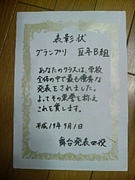 表彰状
グランプリ 五年B組
あなたのクラスは、学校
全体の中で最も優秀な
発表をされました。
よってその栄誉を称え
これを賞します。
平成19年9月1日
舞台発表